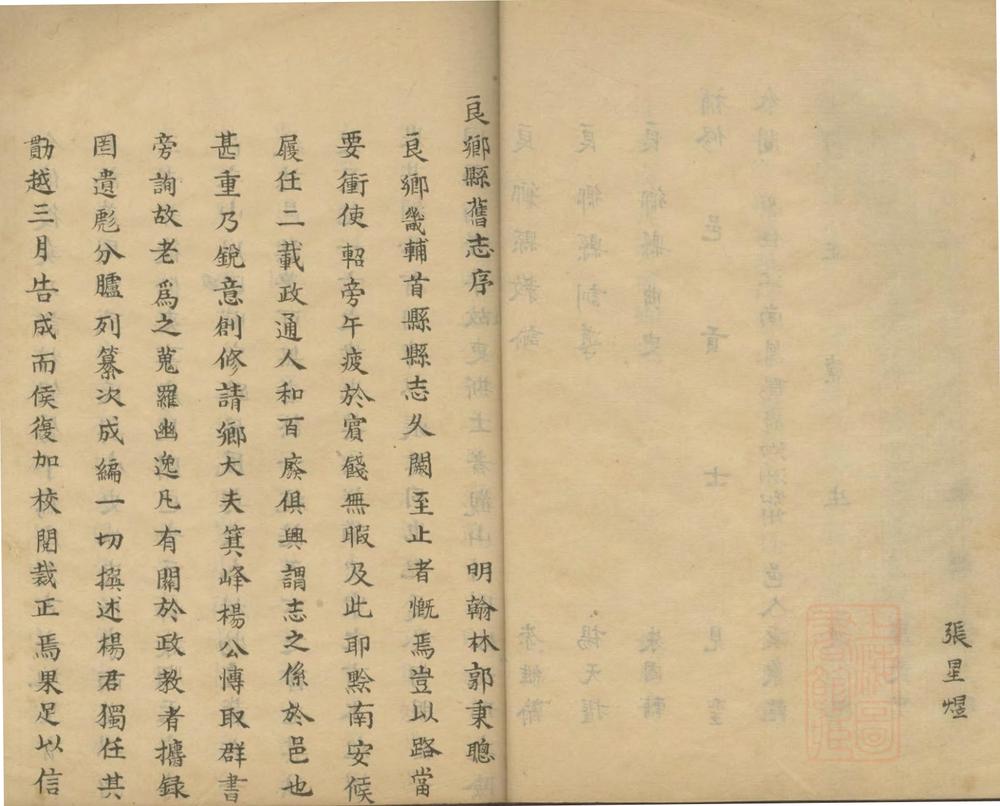 張星煜
良鄉縣舊志序　明翰林郭秉聰
良鄉畿輔首縣縣志久闕至止者慨焉豈以路當
要衝使軺旁午疲於賓餞無暇及此耶黔南安候
履任二載政通人和百廢俱興謂志之係於邑也
甚重乃銳意創修請鄉大夫箕峰楊公慱取群書
旁詢故老爲之蒐羅幽逸凡有關於政教者攟録
罔遺彪分臚列纂次成編一切撰述楊君獨任其
勩越三月告成而侯復加校閱裁正焉果足以信